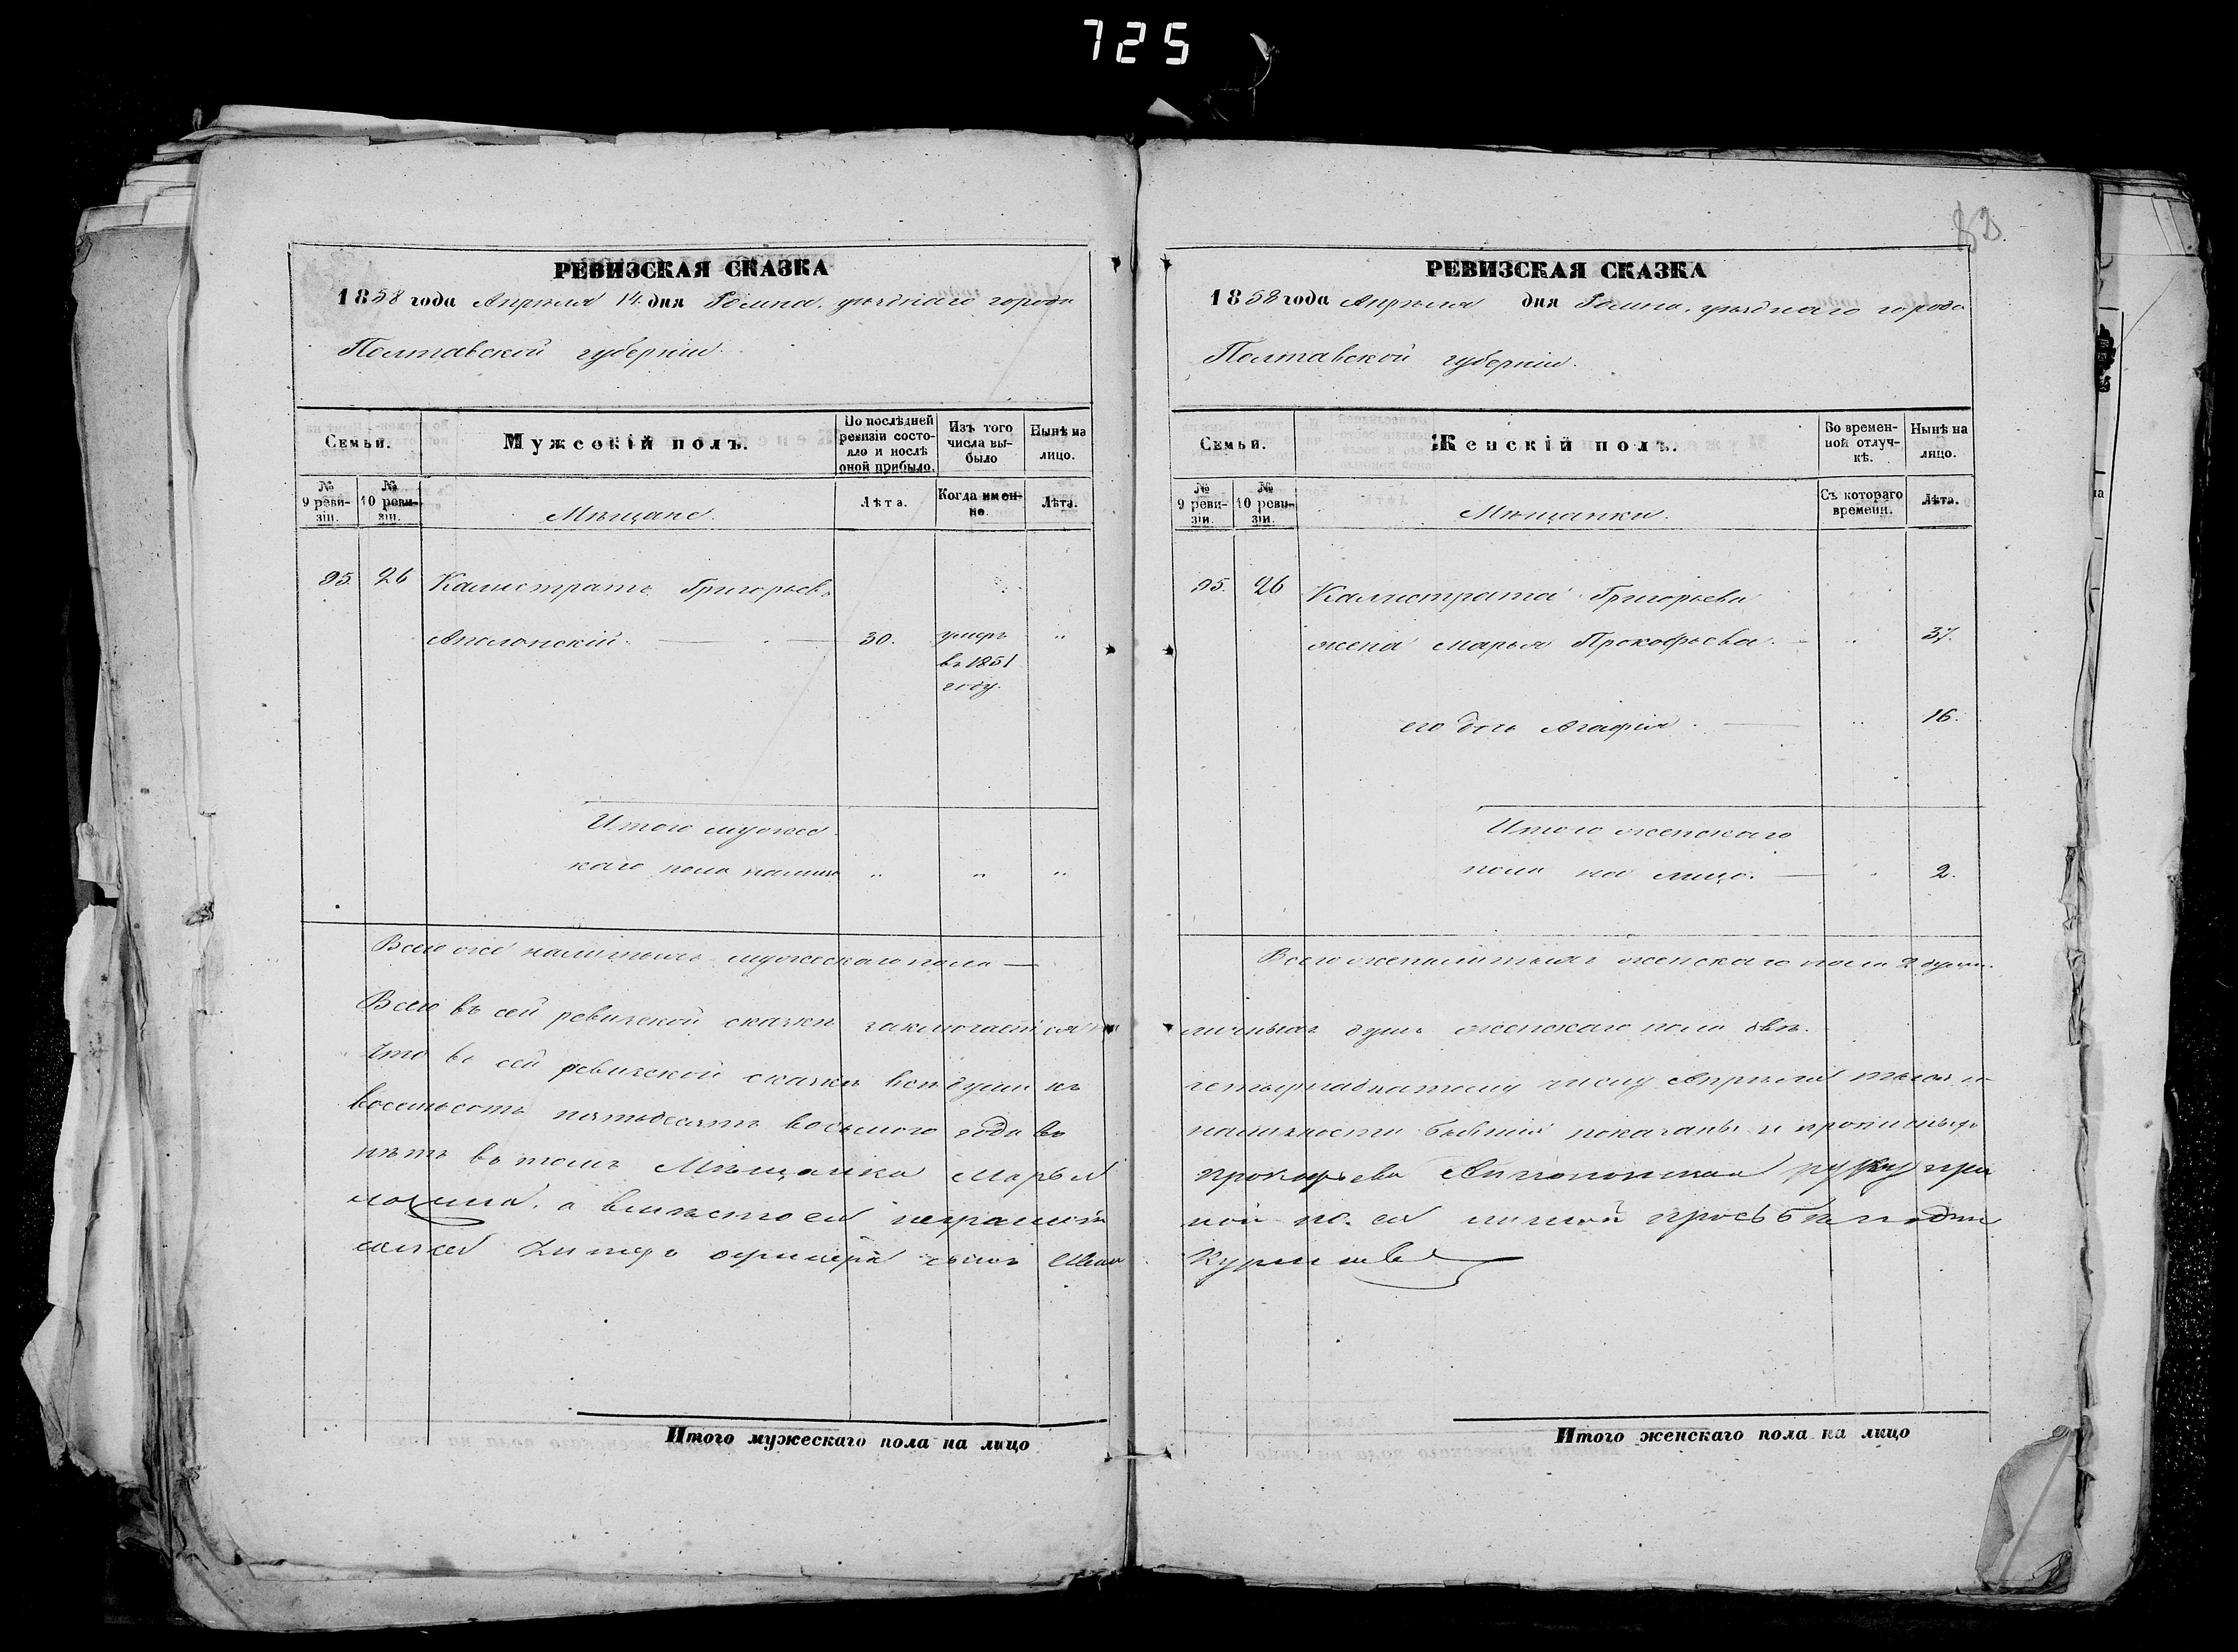 725
82
РЕВИЗСКАЯ СКАЗКА
1858 года Апрѣля 14. дня Ромна, уѣзднаго города
Полтавской губерніи.
Семьи.
Мужескій полъ.
По послѣдней ревизіи состояло и послѣ оной прибыло.
Изъ того числа выбыло
Нынѣ на лицо.
№ 9 ревизіи.
№ 10 ревизіи.
Мѣщане.
Лѣта.
Когда именно.
Лѣта.
95. 26 Калистратъ Григорьевъ
Аполонскій. 30. умеръ "
въ 1851
году.
Итого мужес
каго пола налицо " " "
Всего же наличныхъ мужескаго пола —
Всего въ сей ревизской сказкѣ заключается на
Что въ сей ревизской сказкѣ всѣ души къ
восемьсотъ пятьдесятъ восьмого года въ
нѣтъ въ томъ Мѣщанка Марья
а вмѣсто ея неграмотн
РЕВИЗСКАЯ СКАЗКА
1858 года Апрѣля дня Ромна, уѣзднаго города
Полтавской губерніи.
Семьи.
Женскій полъ.
Во временной отлучкѣ.
Нынѣ на лицо.
№ 9 ревизіи.
№ 10 ревизіи.
Мѣщанки.
Съ котораго времени.
Лѣта.
95. 26 Калистрата Григорьева
жена Марья Прокофьева. " 37.
его дочь Агафія. " 16.
Итого женскаго
пола на лицо. " 2.
Всего же наличныхъ женскаго пола 2 души.
личныхъ душъ женскаго пола двѣ.
четырнадцатому числу Апрѣля тысяча
наличности бывшія показаны и
Прокофьева Аполонская руку при
ной по ея личной просьбѣ
Итого мужескаго пола на лицо
Итого женскаго пола на лицо